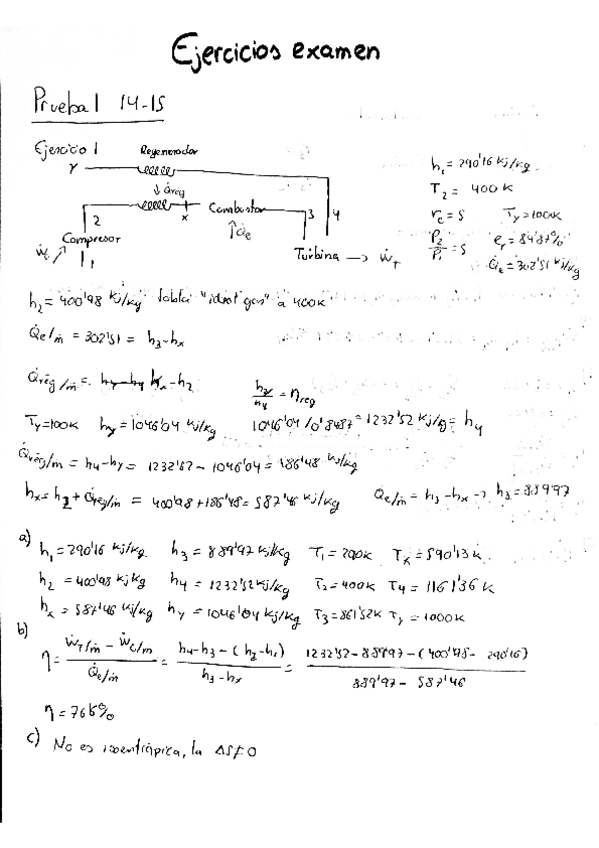 Ejercicios examen
Prueba 1 14-15
Ejercicio 1 Regenerador
Y
↓ Q̇reg
2 x Combustor 3 4
Compresor ↑Q̇e Turbina → ẆT
Ẇc 1
h₁ = 290'16 kJ/kg
T₂ = 400 K
rc = 5 Ty = 1000K
P₂/P₁ = 5 er = 84'87%
Q̇e = 302'51 kJ/kg
h₂ = 400'98 kJ/kg tabla "ideal gas" a 400K
Q̇e/ṁ = 302'51 = h₃-hx
Q̇reg/ṁ = hx-h₂
hy/h₄ = ηreg
Ty=100K hy = 1046'04 kJ/kg 1046'04/0'8487 = 1232'52 kJ/kg = h₄
Q̇reg/ṁ = h₄-hy = 1232'52 - 1046'04 = 186'48 kJ/kg
hx = h₂ + Q̇reg/ṁ = 400'98 + 186'48 = 587'46 kJ/kg Q̇e/ṁ = h₃-hx → h₃ = 889'97
a)
h₁ = 290'16 kJ/kg. h₃ = 889'97 kJ/kg T₁ = 290K Tx = 590'13 K
h₂ = 400'98 kJ/kg h₄ = 1232'52 kJ/kg T₂ = 400K T₄ = 1161'36 K
hx = 587'46 kJ/kg hy = 1046'04 kJ/kg T₃ = 861'52K Ty = 1000K
b)
η = (ẆT/ṁ - Ẇc/ṁ)/(Q̇e/ṁ) = (h₄-h₃-(h₂-h₁))/(h₃-hx) = (1232'52-889'97-(400'98-290'16))/(889'97-587'46)
η = 76'6%
c) No es isentrópica, la ΔS≠0